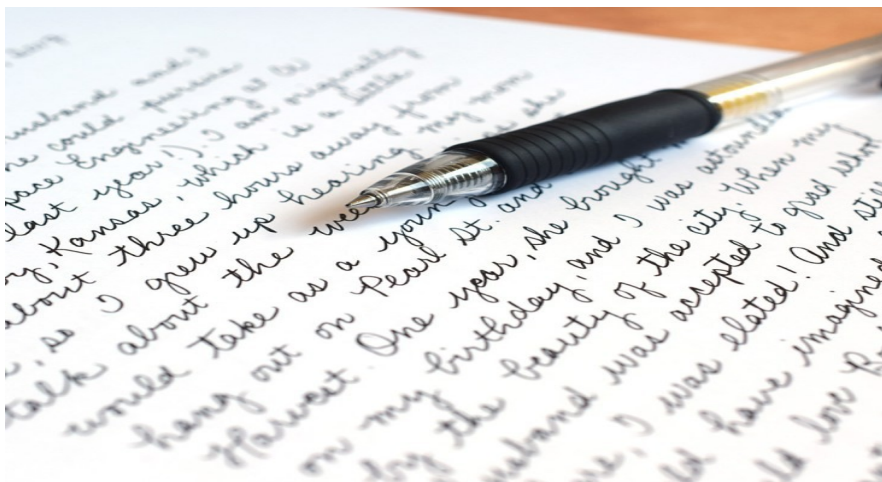 usband and I
could pursue
pace Engineering at
last year!). I am originally
y, Kansas, which is a little
about three hours away from
, so I grew up hearing my mom
talk about the she
would take as a young
hang out on Pearl St. and
Harvest. One year, she brought
on my birthday, and I was astounded
by the beauty of the city. When my
usband was accepted to grad school
I was elated! And still
ld have imagined
ld love